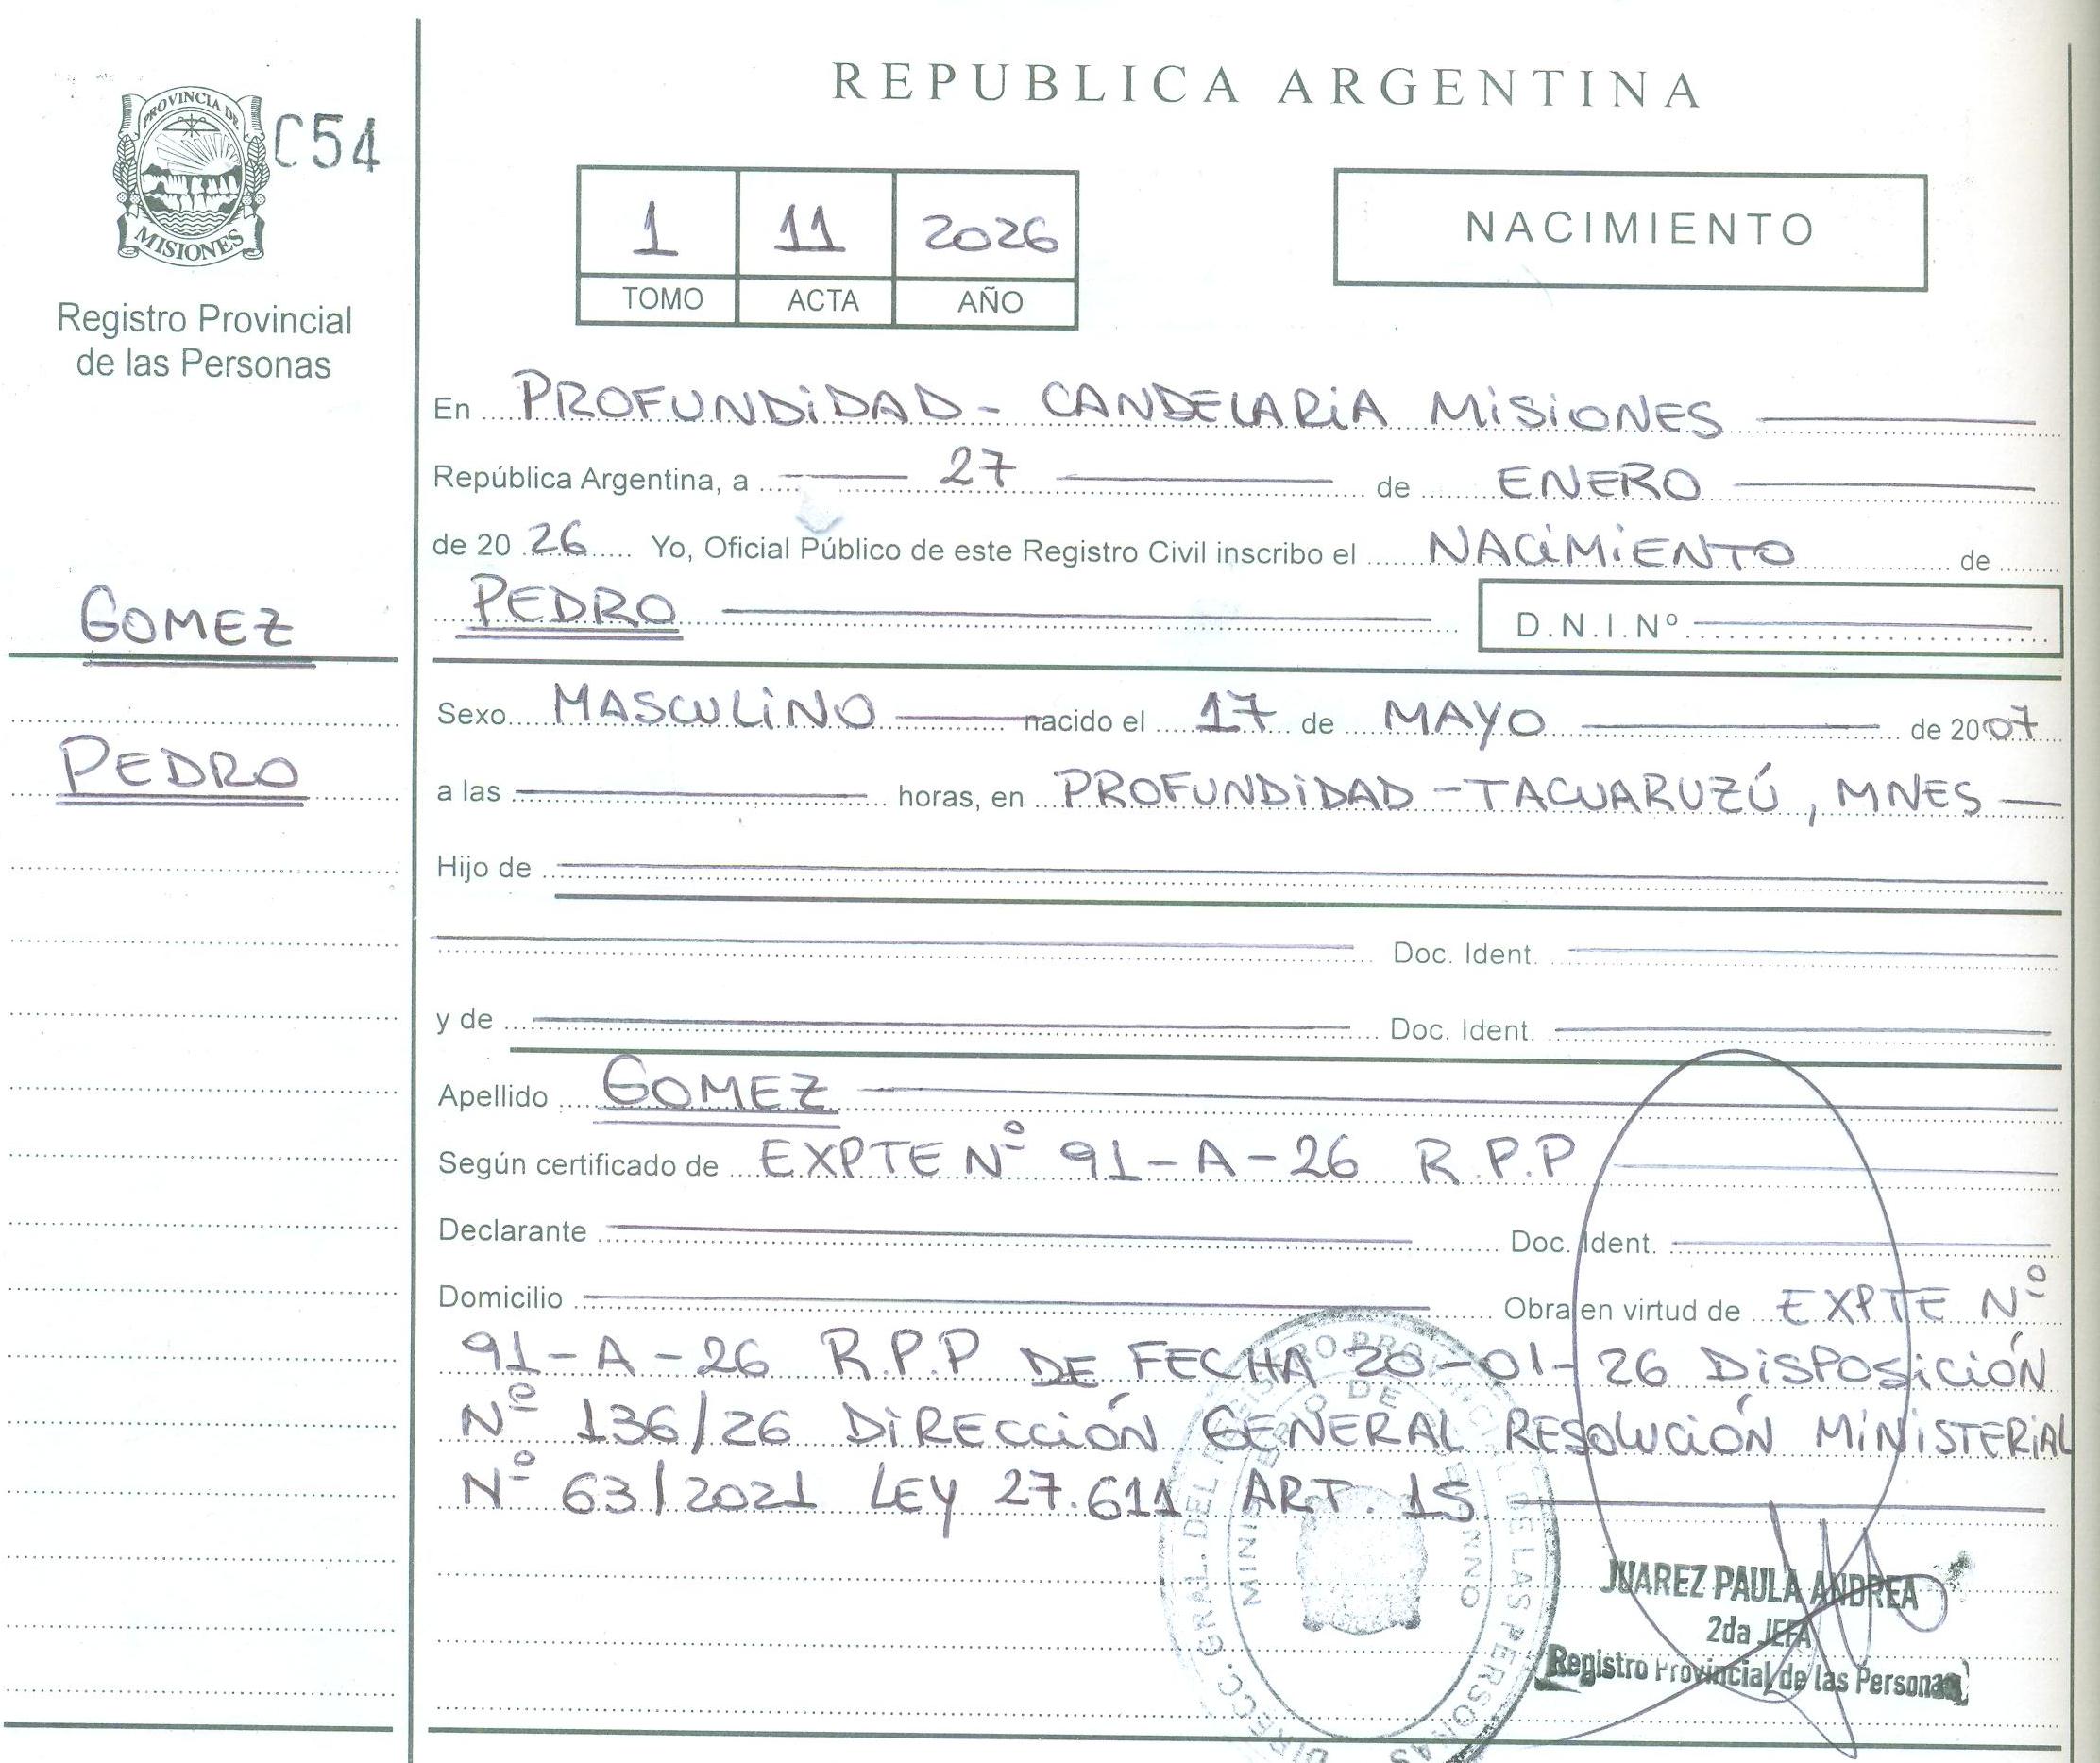 REPUBLICA ARGENTINA
PROVINCIA DE
MISIONES
C54
Registro Provincial
de las Personas
1 11 2026
TOMO ACTA AÑO
NACIMIENTO
En PROFUNDIDAD - CANDELARIA MISIONES
República Argentina, a 27 de ENERO
de 20 26 Yo, Oficial Público de este Registro Civil inscribo el NACIMIENTO de
PEDRO D.N.I.Nº
GOMEZ
PEDRO
Sexo MASCULINO nacido el 17 de MAYO de 2007
a las horas, en PROFUNDIDAD - TACUARUZÚ, MNES
Hijo de
Doc. Ident.
y de Doc. Ident.
Apellido GOMEZ
Según certificado de EXPTE Nº 91-A-26 R.P.P
Declarante Doc. Ident.
Domicilio Obra en virtud de EXPTE Nº
91-A-26 R.P.P DE FECHA 20-01-26 DISPOSICIÓN
Nº 136/26 DIRECCIÓN GENERAL RESOLUCIÓN MINISTERIAL
Nº 63/2021 LEY 27.611 ART. 15
JUAREZ PAULA ANDREA
2da JEFA
Registro Provincial de las Personas
DIRECC. GRAL. DEL REGISTRO PROVINCIAL DE LAS PERSONAS